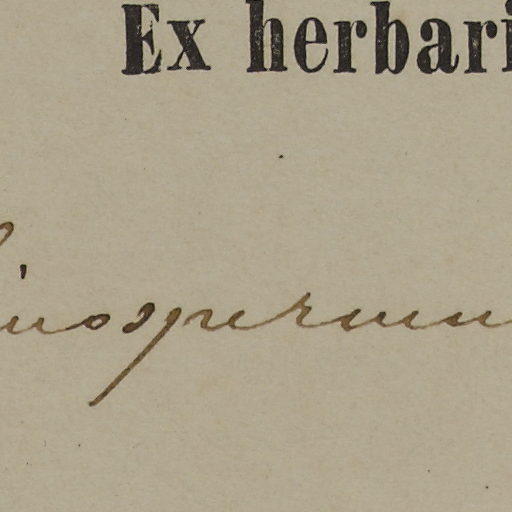 Ex herbari
inospermum